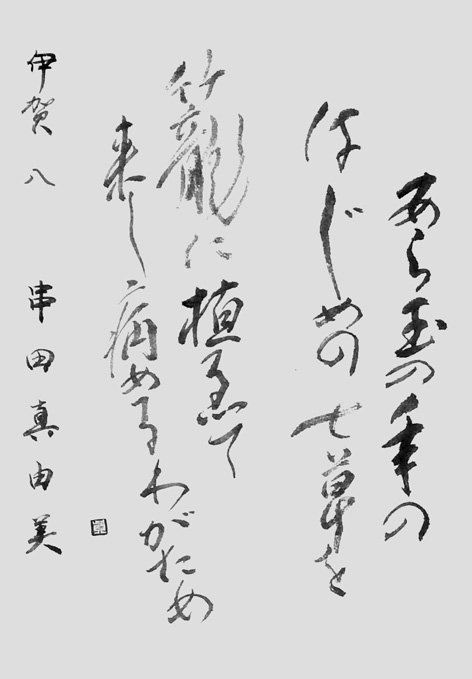 あら玉の年の
はじめの七草を
籠に植ゑて
来し病めるわがため
伊賀八 串田真由美